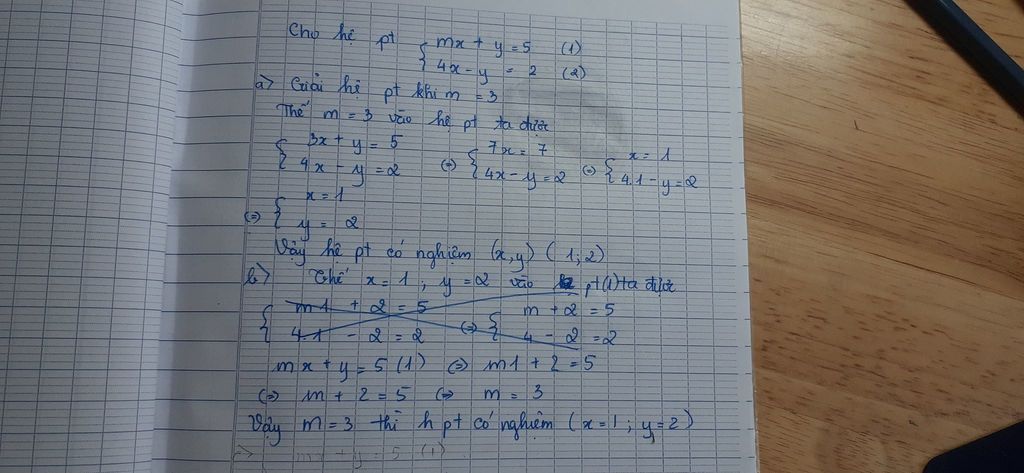 Cho hệ pt { mx + y = 5 (1)
{ 4x - y = 2 (2)
a> Giải hệ pt khi m = 3
Thế m = 3 vào hệ pt ta được
{ 3x + y = 5 (=) { 7x = 7 (=) { x = 1
{ 4x - y = 2 { 4x - y = 2 { 4.1 - y = 2
(=) { x = 1
{ y = 2
Vậy hệ pt có nghiệm (x,y) (1;2)
b> Thế x = 1, y = 2 vào pt(1) ta được
{ m1 + 2 = 5 (=) { m + 2 = 5
{ 4.1 - 2 = 2 { 4 - 2 = 2
mx + y = 5 (1) (=) m1 + 2 = 5
(=) m + 2 = 5 (=) m = 3
Vậy m = 3 thì h pt có nghiệm (x = 1; y = 2)
mx + y = 5 (1)